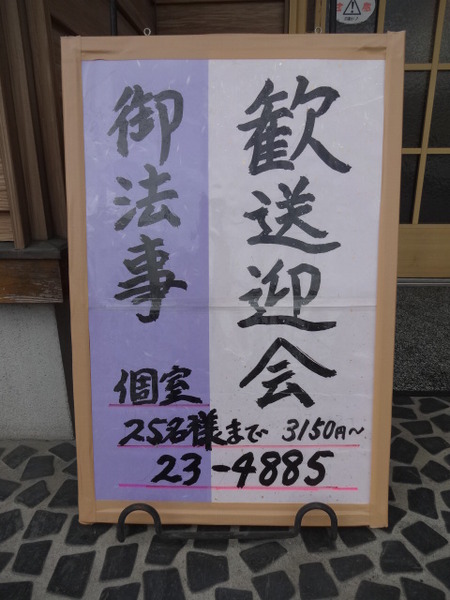 歓送迎会
御法事
個室
25名様まで 3150円〜
23-4885